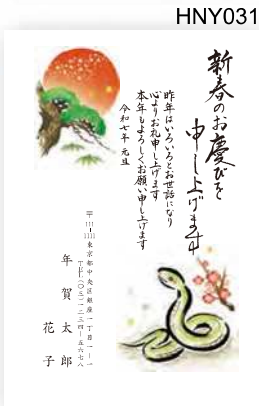 HNY031
新春のお慶びを
申し上げます
昨年はいろいろとお世話になり
心よりお礼申し上げます
本年もよろしくお願い申し上げます
令和七年 元旦
東京都中央区銀座一丁目一ー一
年賀太郎
花子